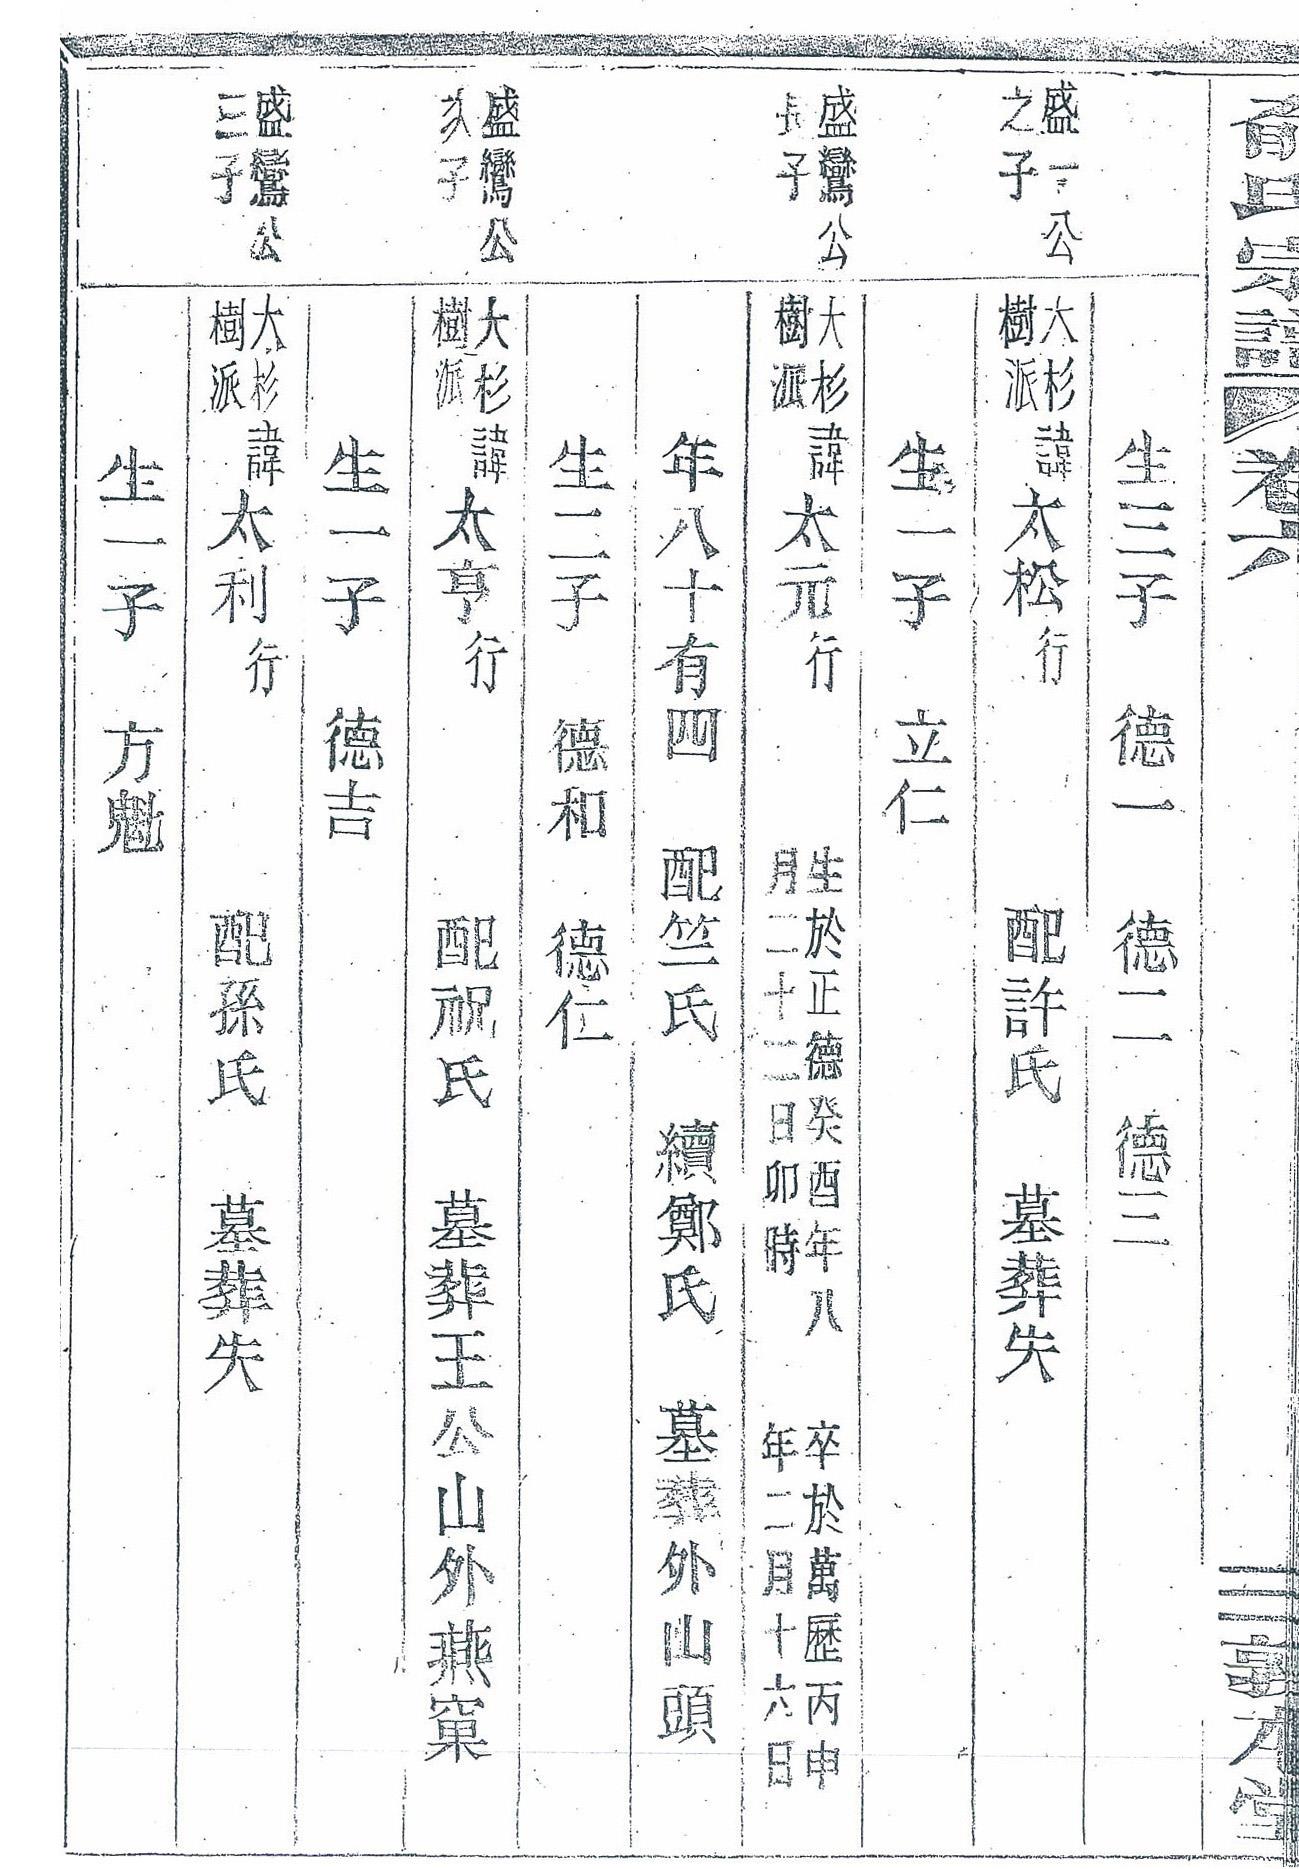 氏宗譜 卷六
生三子 德一 德二 德三
盛一公之子 大杉樹派 諱太松行 配許氏 墓葬失
生一子 立仁
盛鸞公長子 大杉樹派 諱太元行 生於正德癸酉年八月二十二日卯時 卒於萬歷丙申年二月十六日
年八十有四 配竺氏 續鄭氏 墓葬外山頭
生二子 德和 德仁
盛鸞公次子 大杉樹派 諱太亨行 配祝氏 墓葬王公山外燕窠
生一子 德吉
盛鸞公三子 大杉樹派 諱太利行 配孫氏 墓葬失
生一子 方魁